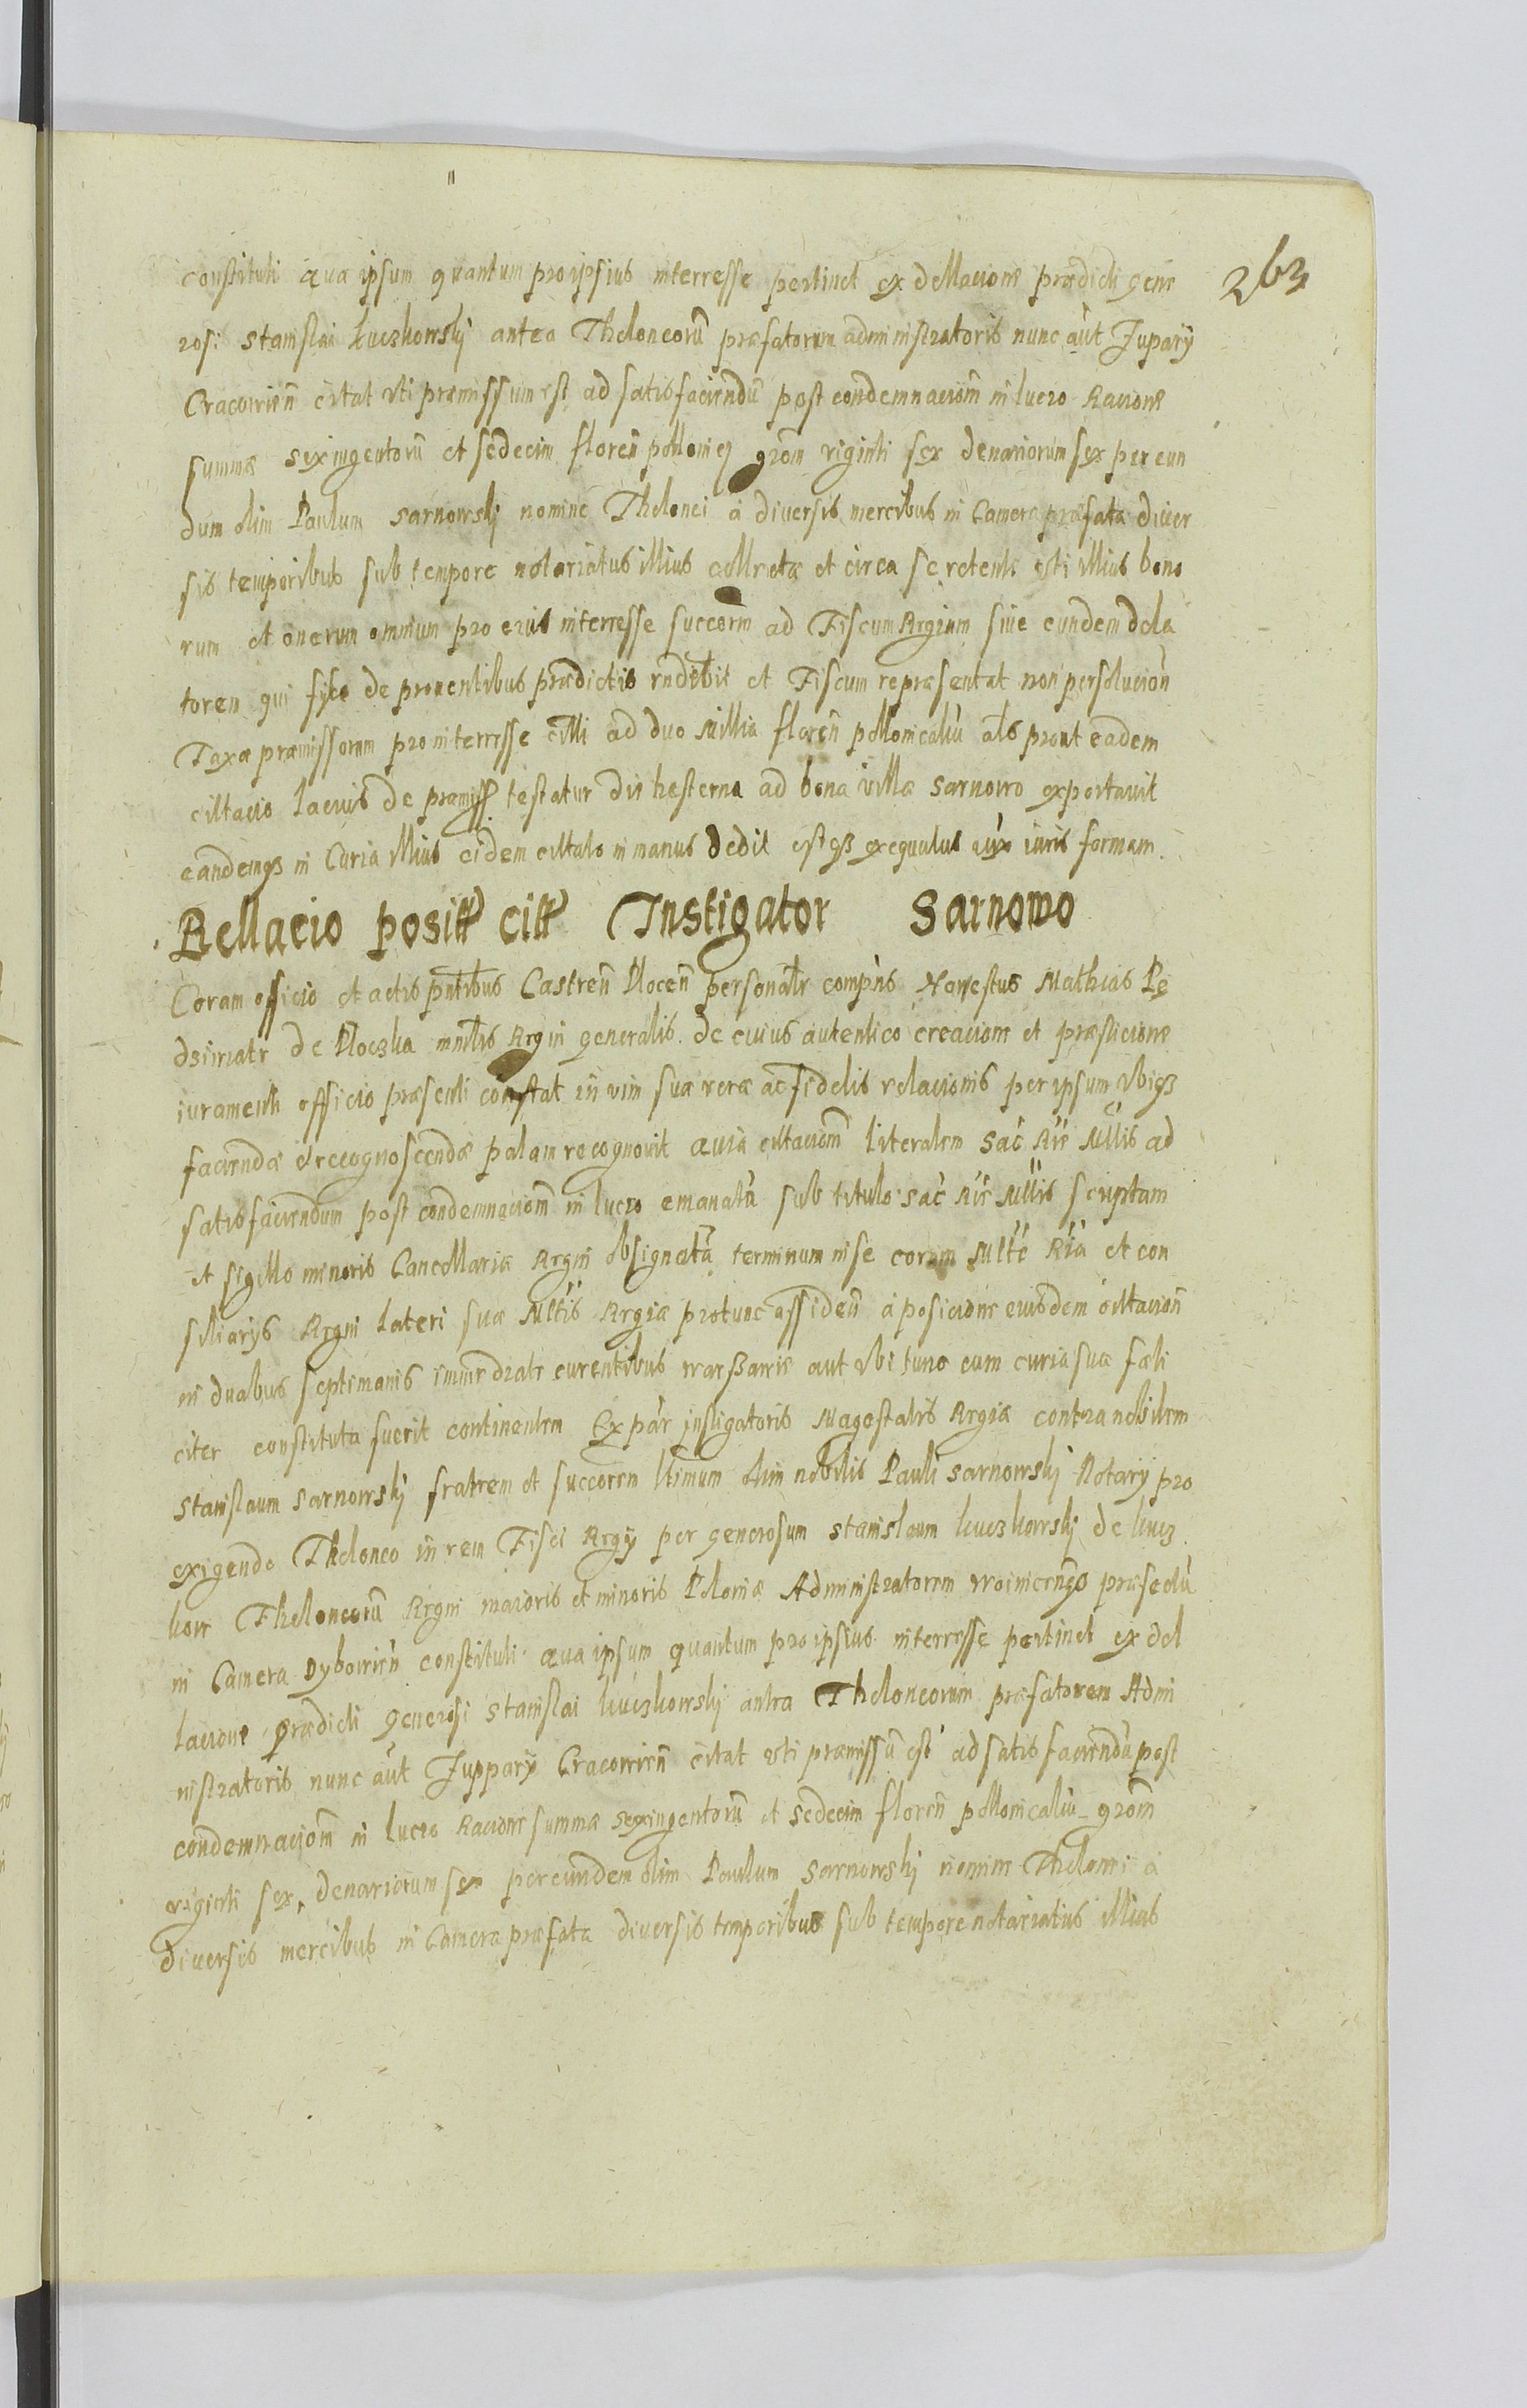 263
constituti qua ipsum quantum pro ipsius interresse pertinet ex dellacione prædicti gene
rosi Stanislai Łuczkowskj antea Theloneorũ præfatorum administratoris nunc aũt Juparÿ
Cracovien̄ citat uti præmissum est ad satisfaciendũ post condemnaciom̄ in lucro Racione
summæ sexingentorũ et sedecim floren̄ pollonicz grom̄ viginti sex denariorum sex per eun
dum olim Paulum Sarnowskj nomine Thelonei a diversis mercibus in Camera præfata diver
sis temporibus sub tempore notariatus illius collectæ et circa se retentæ isti illius bono
rum et onerum omnium pro eius interresse succorm̄ ad Fiscum Regium siue eundem dela
torem qui fisco de prouentibus prædictis rndebit et Fiscum repræsentat non persolucion̄
Taxæ præmissorum pro interresse citti ad duo Millia floren̄ pollonicaliũ als prout eadem
cittacio lacius de præmiss testatur die hesterna ad bona villæ Sarnowo exportauit
eandemqз in Curia illius eidem cittato in manus dedit estqз exequutus iuris formam.
Rellacio positt citt Instigator Sarnowo
Coram officio et actis pn̄tibus Castren̄ Plocen̄ personalr̄ comp̄ns Honestus Mathias Pe
de Ploczka mnlis Regni generalis de cuius autentico creacione et præsticione
iuramenti officio præsenti constat in vim suæ veræ ac fidelis relacionis per ipsum ubiqз
faciendæ et recognoscendæ palam recognouit quia cittaciom̄ literalem Sac̄ Rie Mttis ad
satisfaciendum post condemnaciom̄ in lucro emanatã sub titulo Sac̄ Rie Mttis scriptam
et sigillo minoris Cancellariæ Regni obsignatã terminum in se coram Mtte Ria et con
siliarÿs Regni lateri suæ Mttis Regiæ protunc assiden̄ a posicione eiusdem cittacion̄
in duabus septimanis immediate curentibus Warßawiæ aut ubi tunc cum curia sua fæli
citer constituta fuerit continentem Ex par̄ instigatoris Magestatis Regiæ contra nobilem
Stanislaum Sarnowskj fratrem et succorem ltimum olim nobilis Pauli Sarnowskj Notarÿ pro
exigendo Theloneo in rem Fisci Regÿ per generosum Stanislaum Łuczkowskj de Łucz
kow Theloneorũ Regni maioris et minoris Poloniæ Administratorem præfectũ
in Camera Dybovien̄ constituti qua ipsum quantum pro ipsius interresse pertinet ex del
lacione prædicti generosi Stanislai Łuczkowskj antea Theloneorum præfatorem Admi
nistratoris nunc aũt Jupparÿ Cracovien̄ citat uti præmissũ est ad satisfaciendũ post
condemnaciom̄ in lucro Racione summæ sexingentorũ et sedecim floren̄ pollonicaliũ grom̄
viginti sex, denariorum sex per eundem olim Paulum Sarnowskj nomine Thelonei a
diversis mercibus in Camera præfata diversis temporibus sub tempore notariatus illius